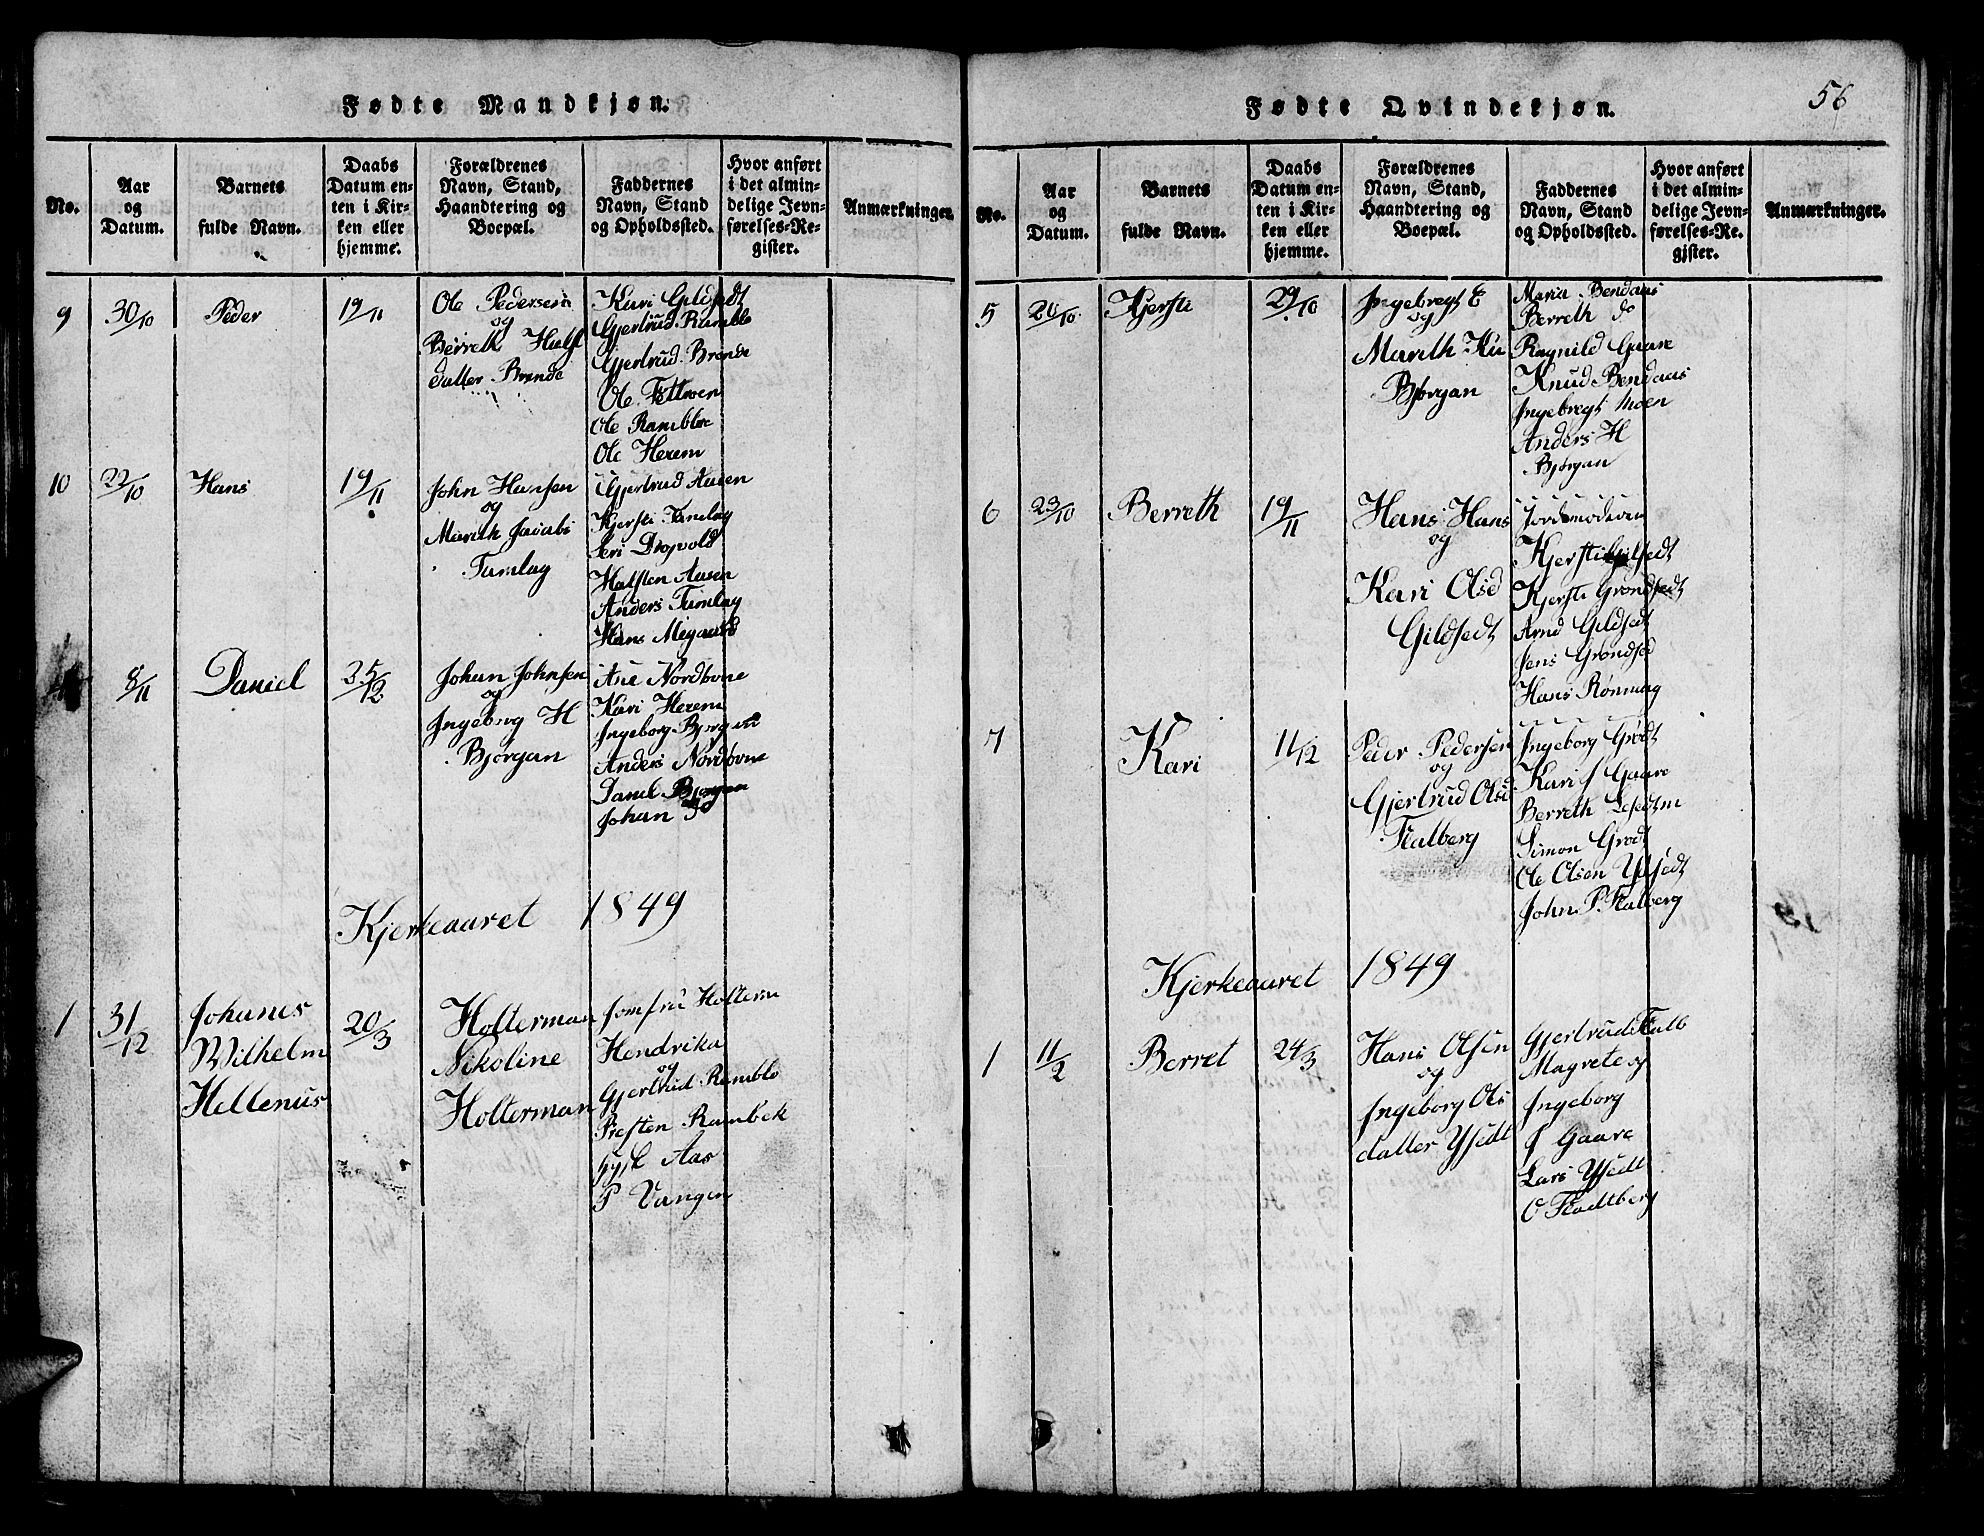 Fødte Mandkjøn.
No.
Aar og Datum.
Barnets fulde Navn.
Daabs Datum enten i Kirken eller hjemme.
Forældrenes Navn, Stand, Haandtering og Boepæl.
Faddernes Navn, Stand og Opholdssted.
Hvor anført i det almindelige Jevnførelses-Register.
Anmærkninger.
9
30/10
Peder
19/11
Ole Pedersen
og
Berreth Halst
datter Brende
Kari Gildsedt
Gjertrud Ramblo
Gjertrud Brende
Ole
Ole Ramblo
Ole Herem
10
22/10
Hans
19/11
John Hansen
og
Mareth Jacobs
Tamlag
Gjertrud Aasen
Kjersti Tamlag
Seri Drojvold
Halsten Aasen
Anders Tamlag
Hans Megaard
8/11
Daniel
Johan Johnsen
og
Ingeborg H
Bjørgan
Ane Nordbone
Kari Herem
Ingeborg Bjørgan
Anders Nordbone
Daniel Bjørgan
Johan do
Kjerkeaaret 1849
1
31/12
Johanes
Wilhelm
Hellenus
20/3
Holterman
Nikoline
Holterman
Jomfru Holterm
Hendrika
og
Gjertrud Ramblo
Presten Rambek
Aas
P Vangen
Fødte Qvindekjøn.
56
No.
Aar og Datum.
Barnets fulde Navn.
Daabs Datum enten i Kirken eller hjemme.
Forældrenes Navn, Stand, Haandtering og Boepæl.
Faddernes Navn, Stand og Opholdssted.
Hvor anført i det almindelige Jevnførelses-Re. gister.
Anmærkninger.
5
20/10
Kjersti
29/10
Ingebregt E
og
Mareth Ku
Bjørgan
Maria Bendaas
Berreth do
Ragnild Gaare
Knud Bendaas
Ingebregt Moen
Anders H
Bjørgan
6
23/10
Berreth
19/11
Hans Hans
og
Kari Olsd
Gildsedt
Jordemoderen
Kjersti Gilsedt
Kjersti Grondsedt
Arnd Gildsedt
Jens Grondsed
Hans Rønning
7
Kari
11/12
Peder Pedersen
og
Gjertrud Olsd
Flatberg
Ingeborg Grødt
Kari J Gaare
Berreth
Simon Grødt
Ole Olsen Ydsedt
John P. Flatberg
Kjerkeaaret 1849
1
11/2
Berret
24/3
Hans Olsen
og
Ingeborg Ols
datter Ysedt
Gjertrud Flatb
Magrete og
Ingeborg
J Gaare
Lars Ysedt
O Fladtberg